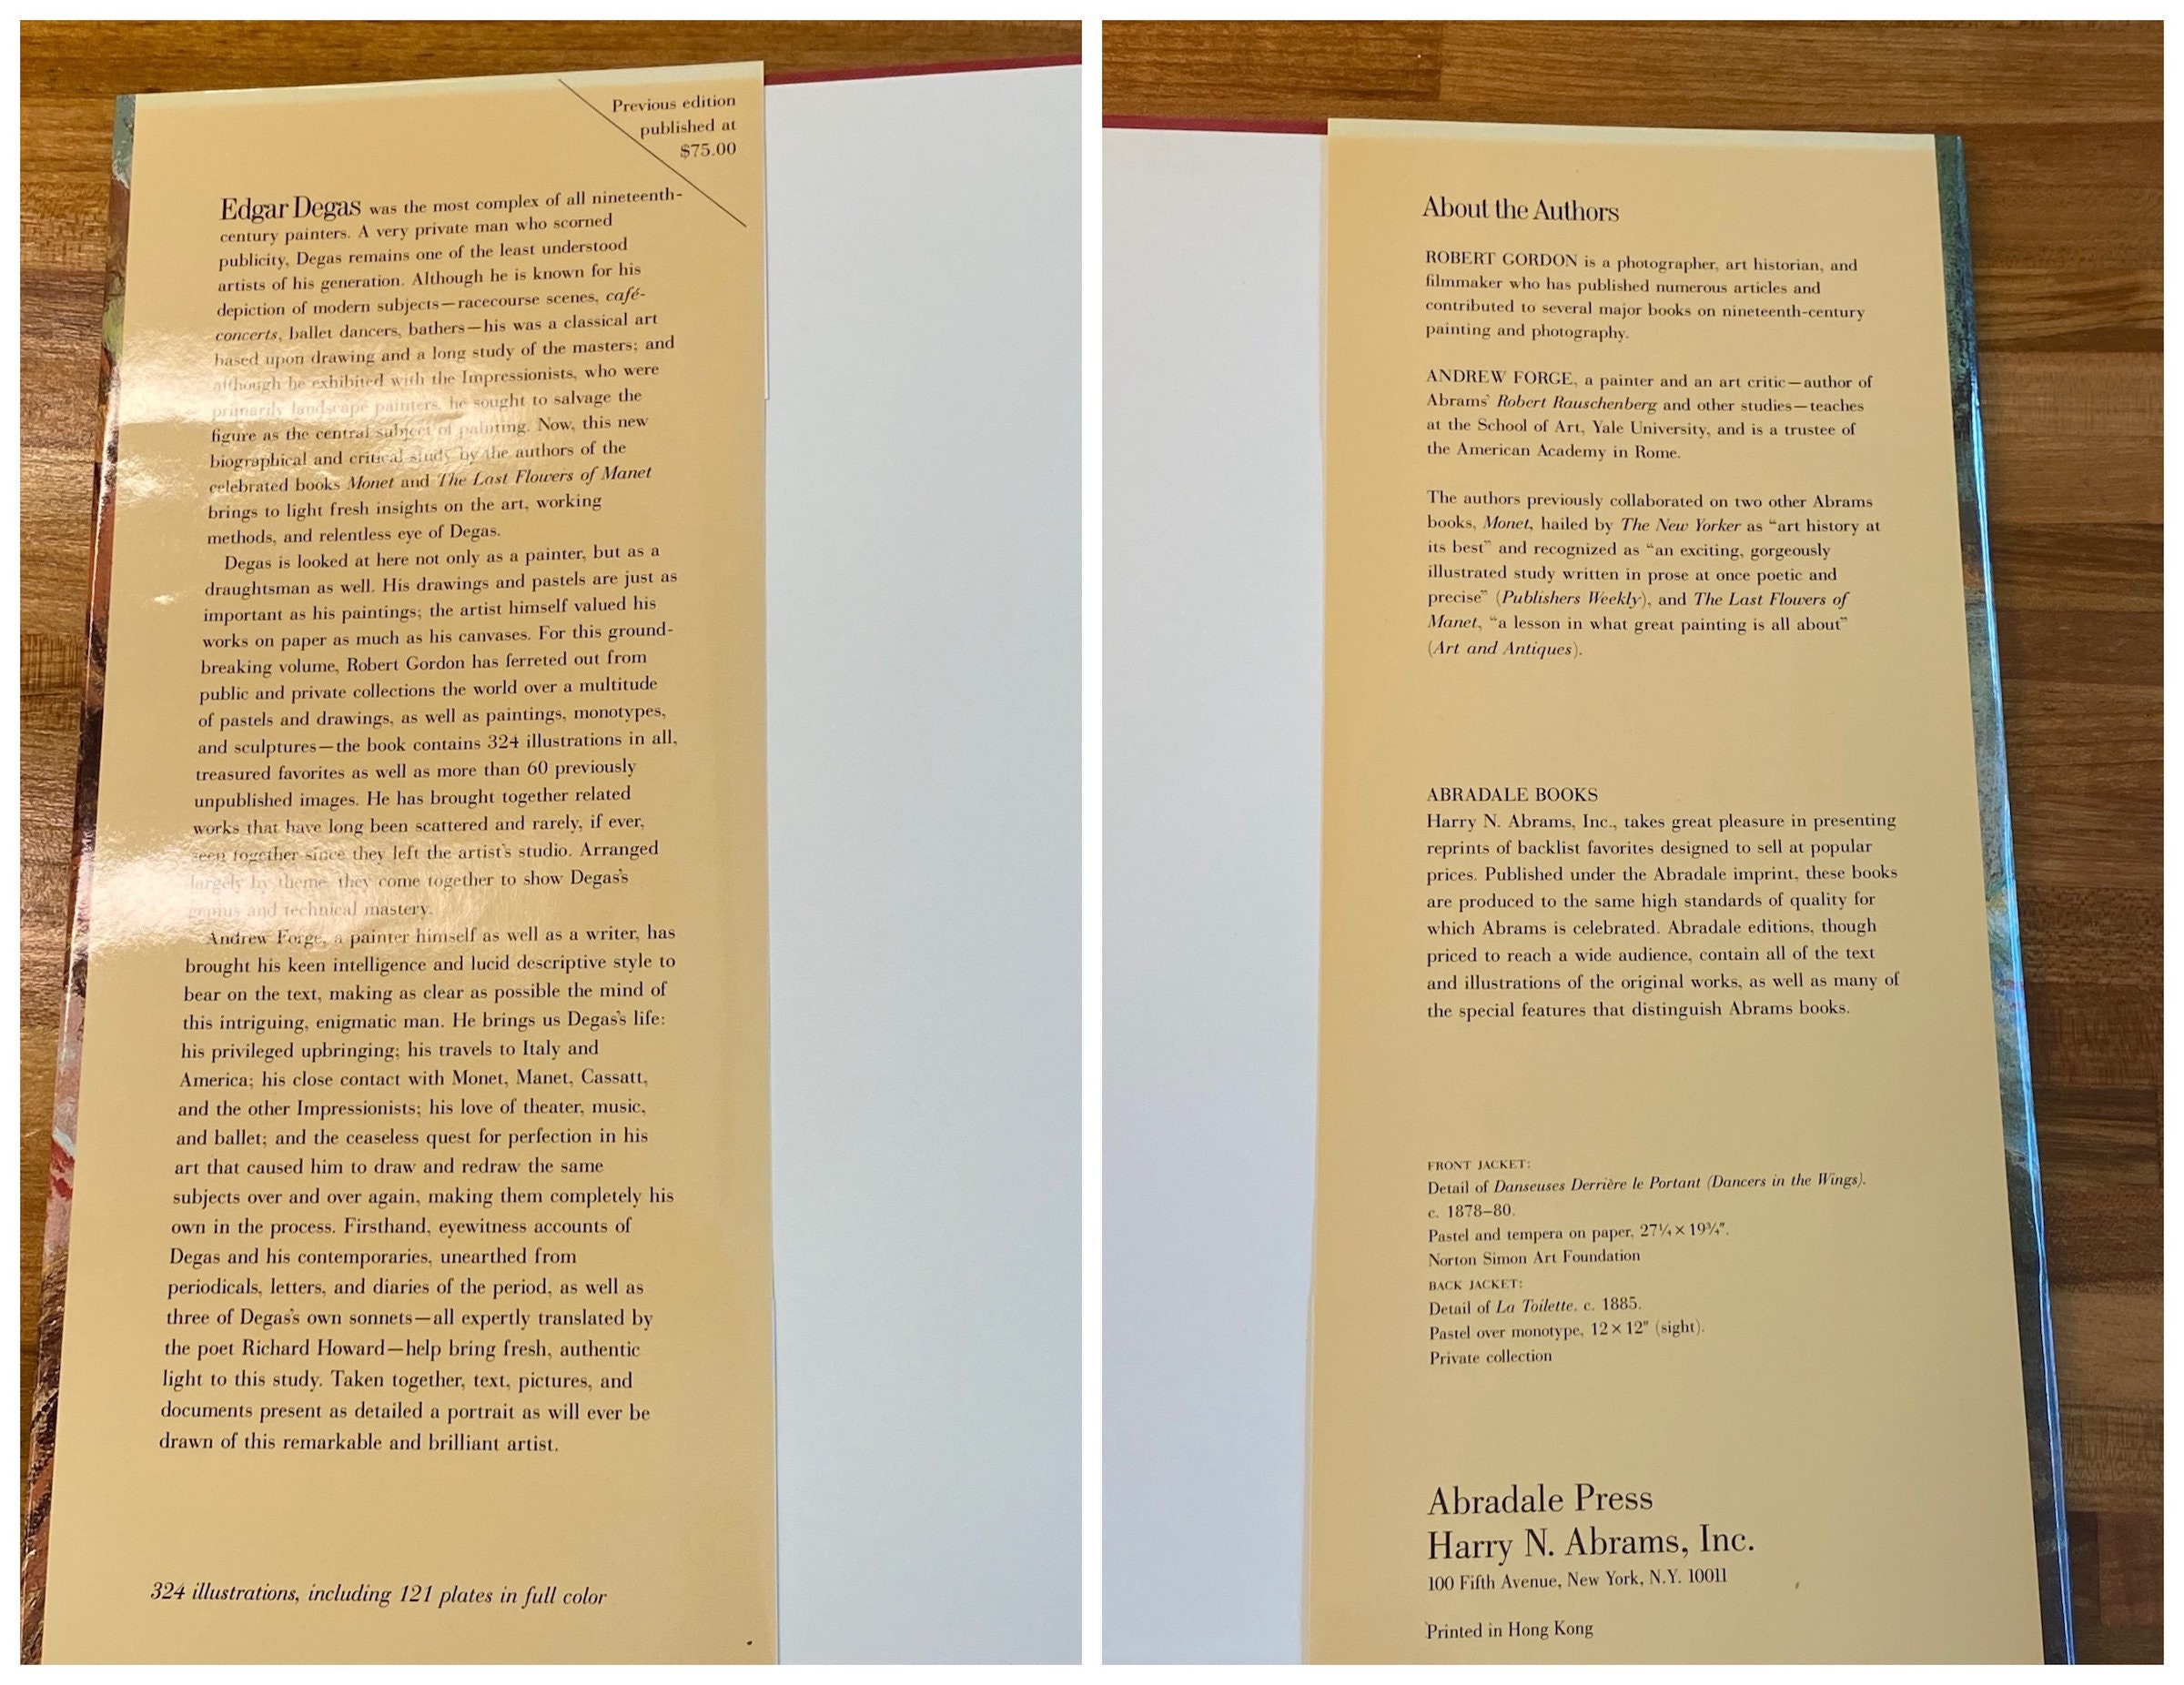 Previous edition
published at
$75.00
Edgar Degas was the most complex of all nineteenth-
century painters. A very private man who scorned
publicity, Degas remains one of the least understood
artists of his generation. Although he is known for his
depiction of modern subjects—racecourse scenes, café-
concerts, ballet dancers, bathers—his was a classical art
based upon drawing and a long study of the masters; and
although he exhibited with the Impressionists, who were
primarily landscape painters, he sought to salvage the
figure as the central subject of painting. Now, this new
biographical and critical study by the authors of the
celebrated books Monet and The Last Flowers of Manet
brings to light fresh insights on the art, working
methods, and relentless eye of Degas.
Degas is looked at here not only as a painter, but as a
draughtsman as well. His drawings and pastels are just as
important as his paintings; the artist himself valued his
works on paper as much as his canvases. For this ground-
breaking volume, Robert Gordon has ferreted out from
public and private collections the world over a multitude
of pastels and drawings, as well as paintings, monotypes,
and sculptures—the book contains 324 illustrations in all,
treasured favorites as well as more than 60 previously
unpublished images. He has brought together related
works that have long been scattered and rarely, if ever,
seen together since they left the artist's studio. Arranged
largely by theme, they come together to show Degas's
genius and technical mastery.
Andrew Forge, a painter himself as well as a writer, has
brought his keen intelligence and lucid descriptive style to
bear on the text, making as clear as possible the mind of
this intriguing, enigmatic man. He brings us Degas's life:
his privileged upbringing; his travels to Italy and
America; his close contact with Monet, Manet, Cassatt,
and the other Impressionists; his love of theater, music,
and ballet; and the ceaseless quest for perfection in his
art that caused him to draw and redraw the same
subjects over and over again, making them completely his
own in the process. Firsthand, eyewitness accounts of
Degas and his contemporaries, unearthed from
periodicals, letters, and diaries of the period, as well as
three of Degas's own sonnets—all expertly translated by
the poet Richard Howard—help bring fresh, authentic
light to this study. Taken together, text, pictures, and
documents present as detailed a portrait as will ever be
drawn of this remarkable and brilliant artist.
324 illustrations, including 121 plates in full color
About the Authors
ROBERT GORDON is a photographer, art historian, and
filmmaker who has published numerous articles and
contributed to several major books on nineteenth-century
painting and photography.
ANDREW FORGE, a painter and an art critic—author of
Abrams' Robert Rauschenberg and other studies—teaches
at the School of Art, Yale University, and is a trustee of
the American Academy in Rome.
The authors previously collaborated on two other Abrams
books, Monet, hailed by The New Yorker as “art history at
its best” and recognized as “an exciting, gorgeously
illustrated study written in prose at once poetic and
precise” (Publishers Weekly), and The Last Flowers of
Manet, “a lesson in what great painting is all about”
(Art and Antiques).
ABRADALE BOOKS
Harry N. Abrams, Inc., takes great pleasure in presenting
reprints of backlist favorites designed to sell at popular
prices. Published under the Abradale imprint, these books
are produced to the same high standards of quality for
which Abrams is celebrated. Abradale editions, though
priced to reach a wide audience, contain all of the text
and illustrations of the original works, as well as many of
the special features that distinguish Abrams books.
FRONT JACKET:
Detail of Danseuses Derrière le Portant (Dancers in the Wings).
c. 1878–80.
Pastel and tempera on paper, 27¼ × 19¾".
Norton Simon Art Foundation
BACK JACKET:
Detail of La Toilette. c. 1885.
Pastel over monotype, 12 × 12" (sight).
Private collection
Abradale Press
Harry N. Abrams, Inc.
100 Fifth Avenue, New York, N.Y. 10011
Printed in Hong Kong